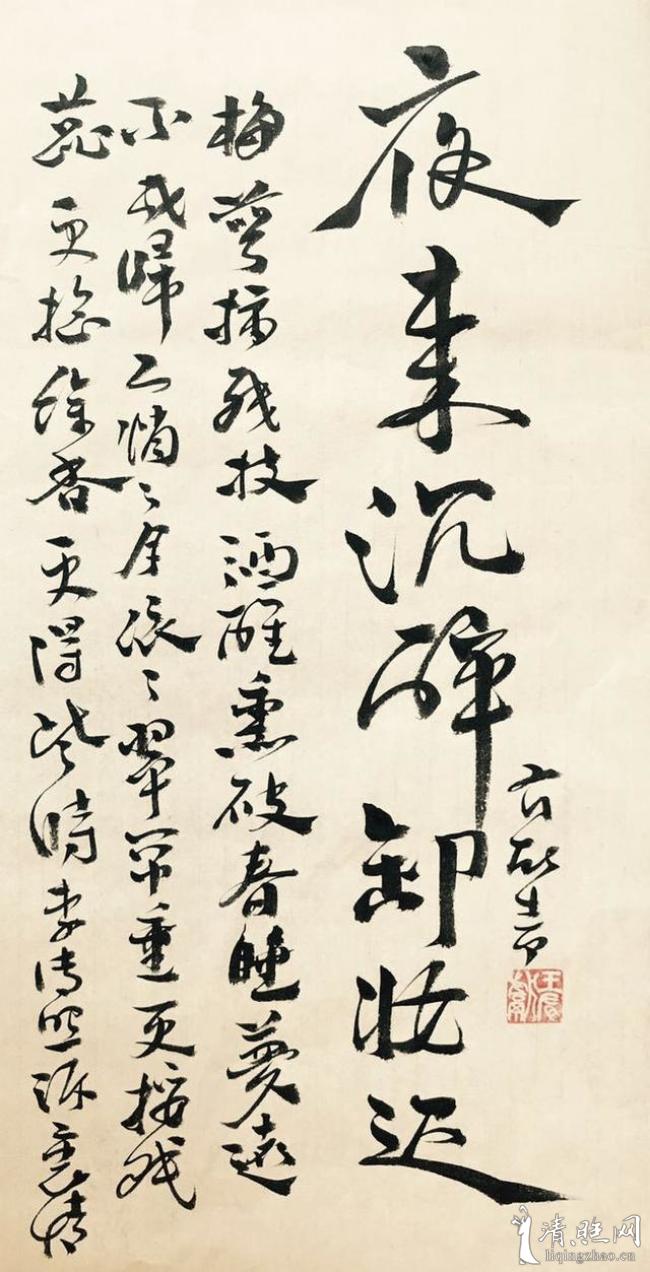 夜来沉醉卸妝迟
梅萼插残枝酒醒熏破春睡夢遠
不成歸人悄々月依々翠帘垂更挼残
蕊更捻餘香更得些時李清照訴衷情
清照网
liqingzhao.cn